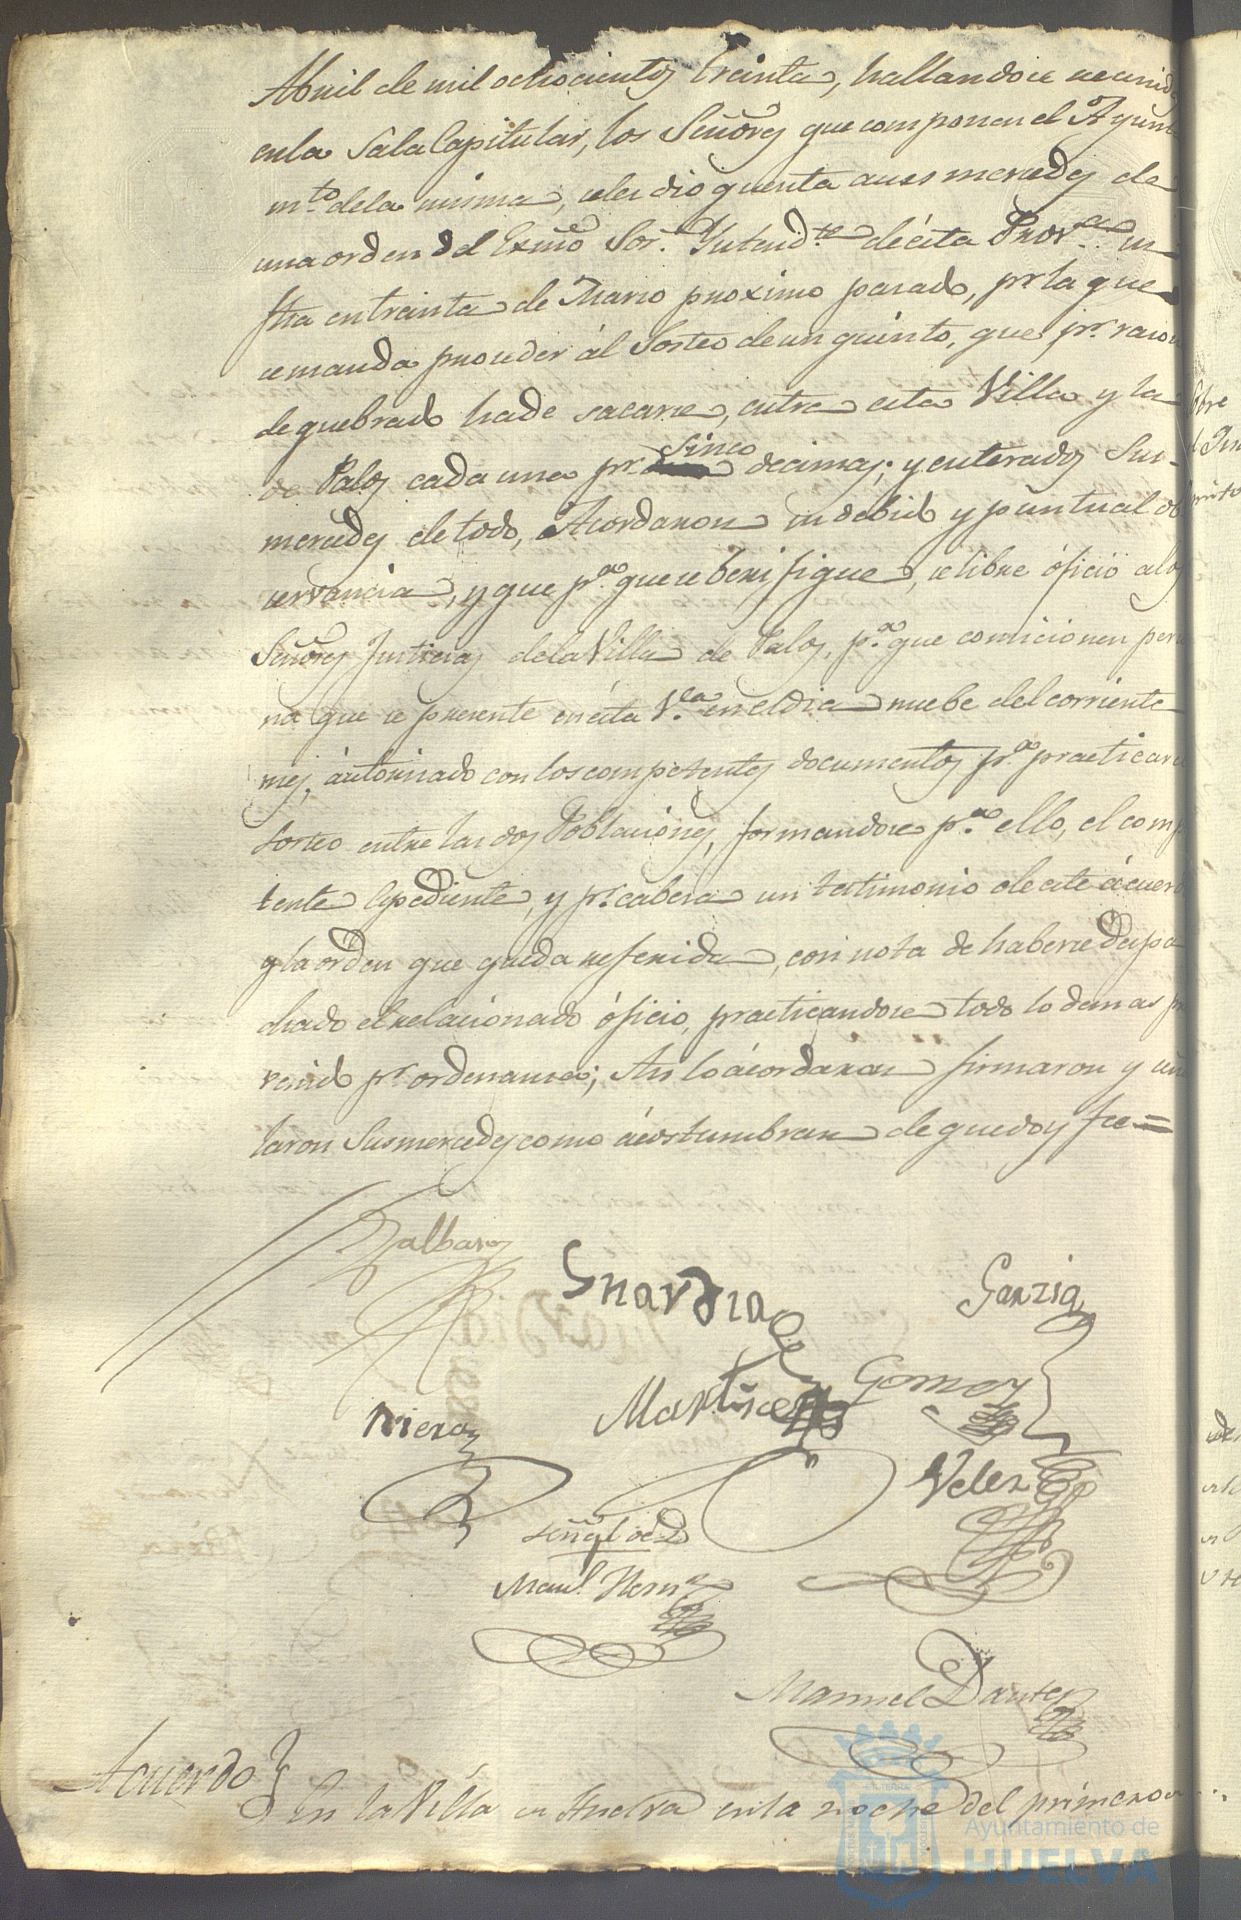 Abril de mil ochocientos treinta, hallandose reunid
en la Sala Capitular, los Señores que componen el Ayunt
mto. de la misma, se les dio quenta a sus mercedes de
una orden del Exmo Sor. Yntendte. de ésta Prova. su
fha en treinta de Marzo proximo pasado, pr. la que
se manda proceder ál Sorteo de un quinto, que pr. razon
de quebrado ha de sacarse, entre esta Villa y la
de Palos cada una pr. sinco decimas; y enterados Sus
mercedes de todo, Acordaron su debido y puntual ob
servancia, y que pa. que se berifique, se libre óficio a los
Señores Justicias de la Villa de Palos, pa. que comicionen perso
na que se presente en ésta Va. en el dia nuebe del corriente
mes, áutorisado con los competentes documentos pa. practicar el
Sorteo entre las dos Poblaciónes, formandose pa. ello, el comp
tente Espediente, y pr. cabesa un testimonio de este ácuerd
y la orden que queda referida, con nota de haberse despa
chado el relacionado óficio, practicandose todo lo demas pr
venido pr. ordenansa; Asi lo ácordaron firmaron y señ
laron Sus mercedes como ácostumbran de que doy fee=
Galbaro
Guardia
Garzia
Riero
Martines
Gomez
Velez
señal de D.
Manl. Hernz
Manuel Dante
Acuerdo
En la Villa de Huelva en la noche del primero
Ayuntamiento de
HUELVA